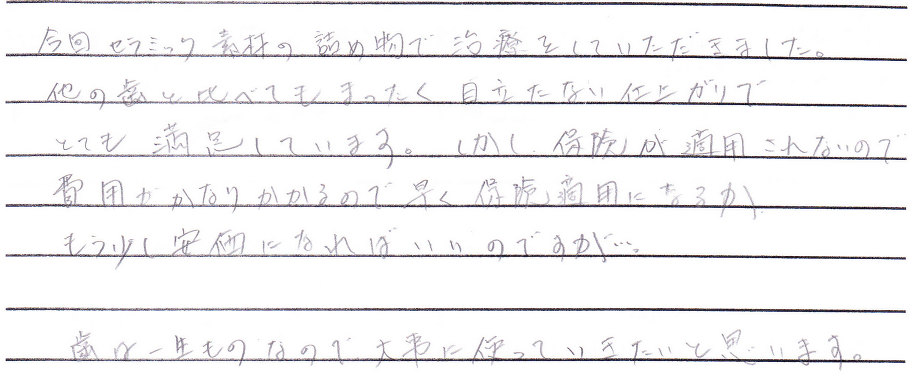 今回セラミック素材の詰め物で治療をしていただきました。
他の歯と比べてもまったく目立たない仕上がりで
とても満足しています。しかし、保険が適用されないので
費用がかなりかかるので早く保険適用になるか
もう少し安価になればいいのですが…。
歯は一生ものなので大事に使っていきたいと思います。